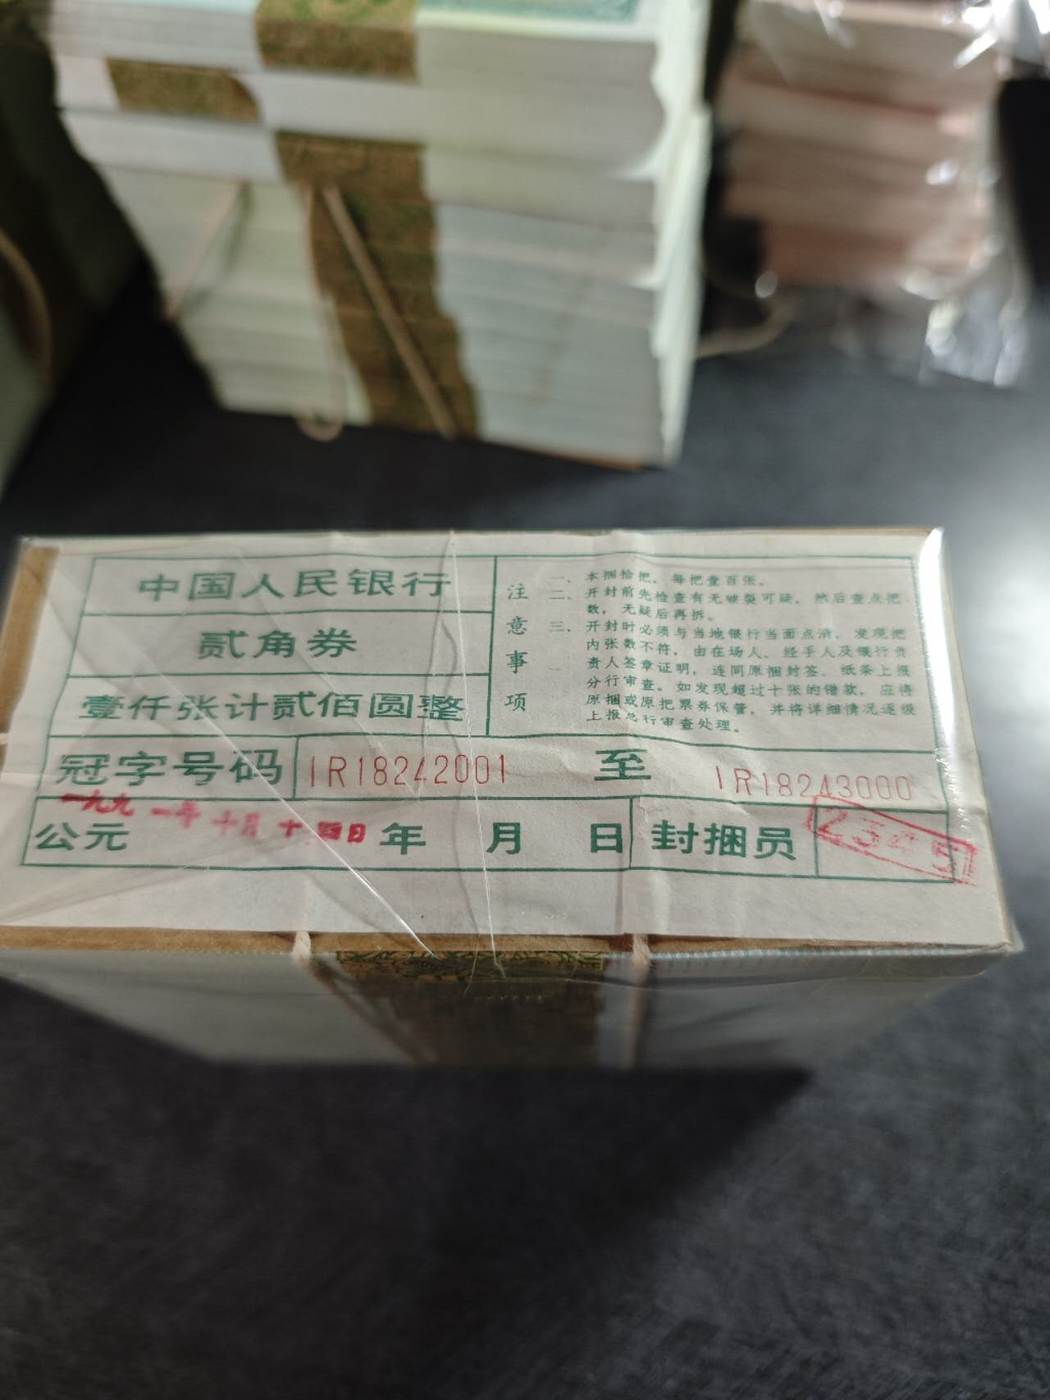 中国人民银行
贰角券
壹仟张计贰佰圆整
注意事项
一、本捆拾把，每把壹百张。
二、开封前先检查有无破裂可疑，然后查点把
数，无疑后再拆。
三、开封时必须与当地银行当面点清，发现把
内张数不符，由在场人、经手人及银行负
责人签章证明，连同原捆封签、纸条上报
分行审查。如发现超过十张的错款，应将
原捆或原把票券保管，并将详细情况逐级
上报总行审查处理。
冠字号码 IR18242001 至 IR18243000
一九九一年十月十四日
公元 年 月 日 封捆员